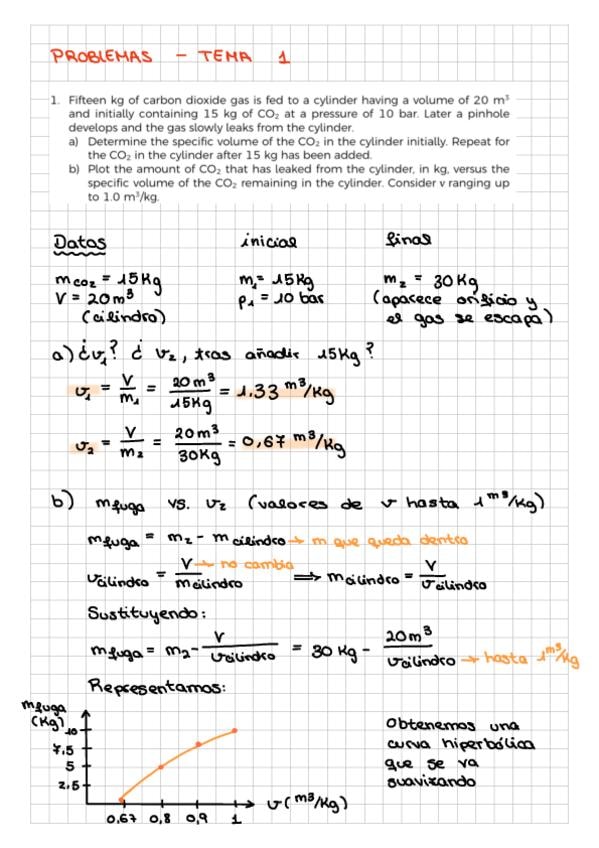 PROBLEMAS - TEMA 1
1. Fifteen kg of carbon dioxide gas is fed to a cylinder having a volume of 20 m³
and initially containing 15 kg of CO₂ at a pressure of 10 bar. Later a pinhole
develops and the gas slowly leaks from the cylinder.
a) Determine the specific volume of the CO₂ in the cylinder initially. Repeat for
the CO₂ in the cylinder after 15 kg has been added.
b) Plot the amount of CO₂ that has leaked from the cylinder, in kg, versus the
specific volume of the CO₂ remaining in the cylinder. Consider v ranging up
to 1.0 m³/kg.
Datos inicial final
mco2 = 15Kg m₁= 15Kg m₂ = 30Kg
V = 20m³ P₁ = 10 bar (aparece orificio y
(cilindro) el gas se escapa)
a) ¿v₁? ¿ v₂, tras añadir 15Kg?
v₁ = V/m₁ = 20m³/15Kg = 1.33 m³/Kg
v₂ = V/m₂ = 20m³/30Kg = 0,67 m³/Kg
b) mfuga vs. v₂ (valores de v hasta 1 m³/Kg)
mfuga = m₂ - m cilindro → m que queda dentro
vcilindro = V → no cambia/mcilindro ⟹ mcilindro = V/vcilindro
Sustituyendo:
mfuga = m₂ - V/vcilindro = 30 Kg - 20m³/vcilindro → hasta 1 m³/Kg
Representamos:
mfuga
(Kg)
10
7,5
5
2,5
0,67 0,8 0,9 1
v (m³/Kg)
Obtenemos una
curva hiperbólica
que se va
suavizando